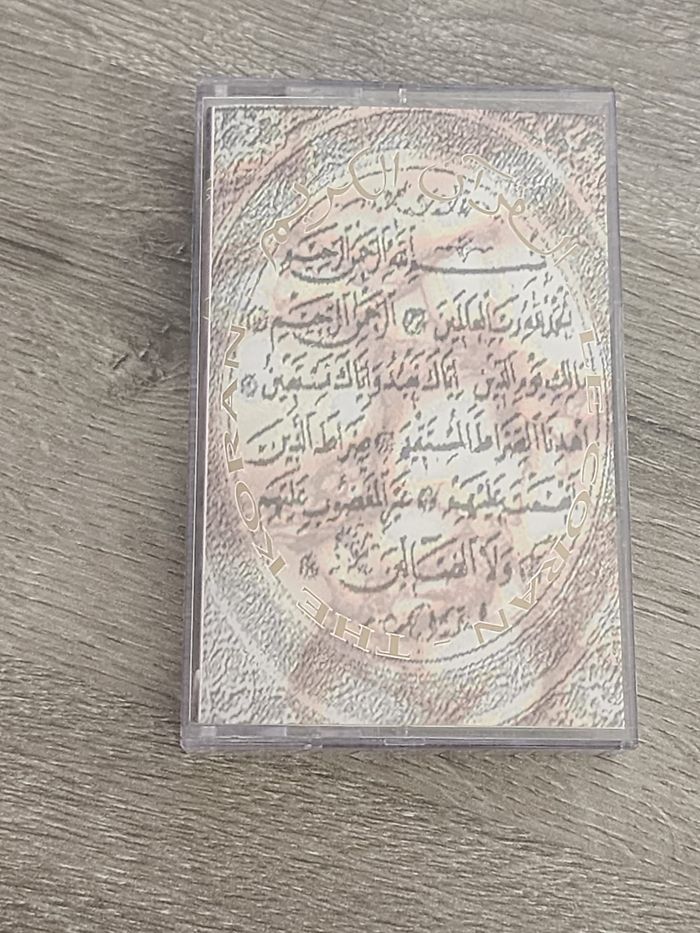 القرآن الكريم
بسم الله الرحمن الرحيم
الحمد لله رب العالمين الرحمن الرحيم
مالك يوم الدين إياك نعبد وإياك نستعين
اهدنا الصراط المستقيم صراط الذين
أنعمت عليهم غير المغضوب عليهم
ولا الضالين
LE CORAN - THE KORAN